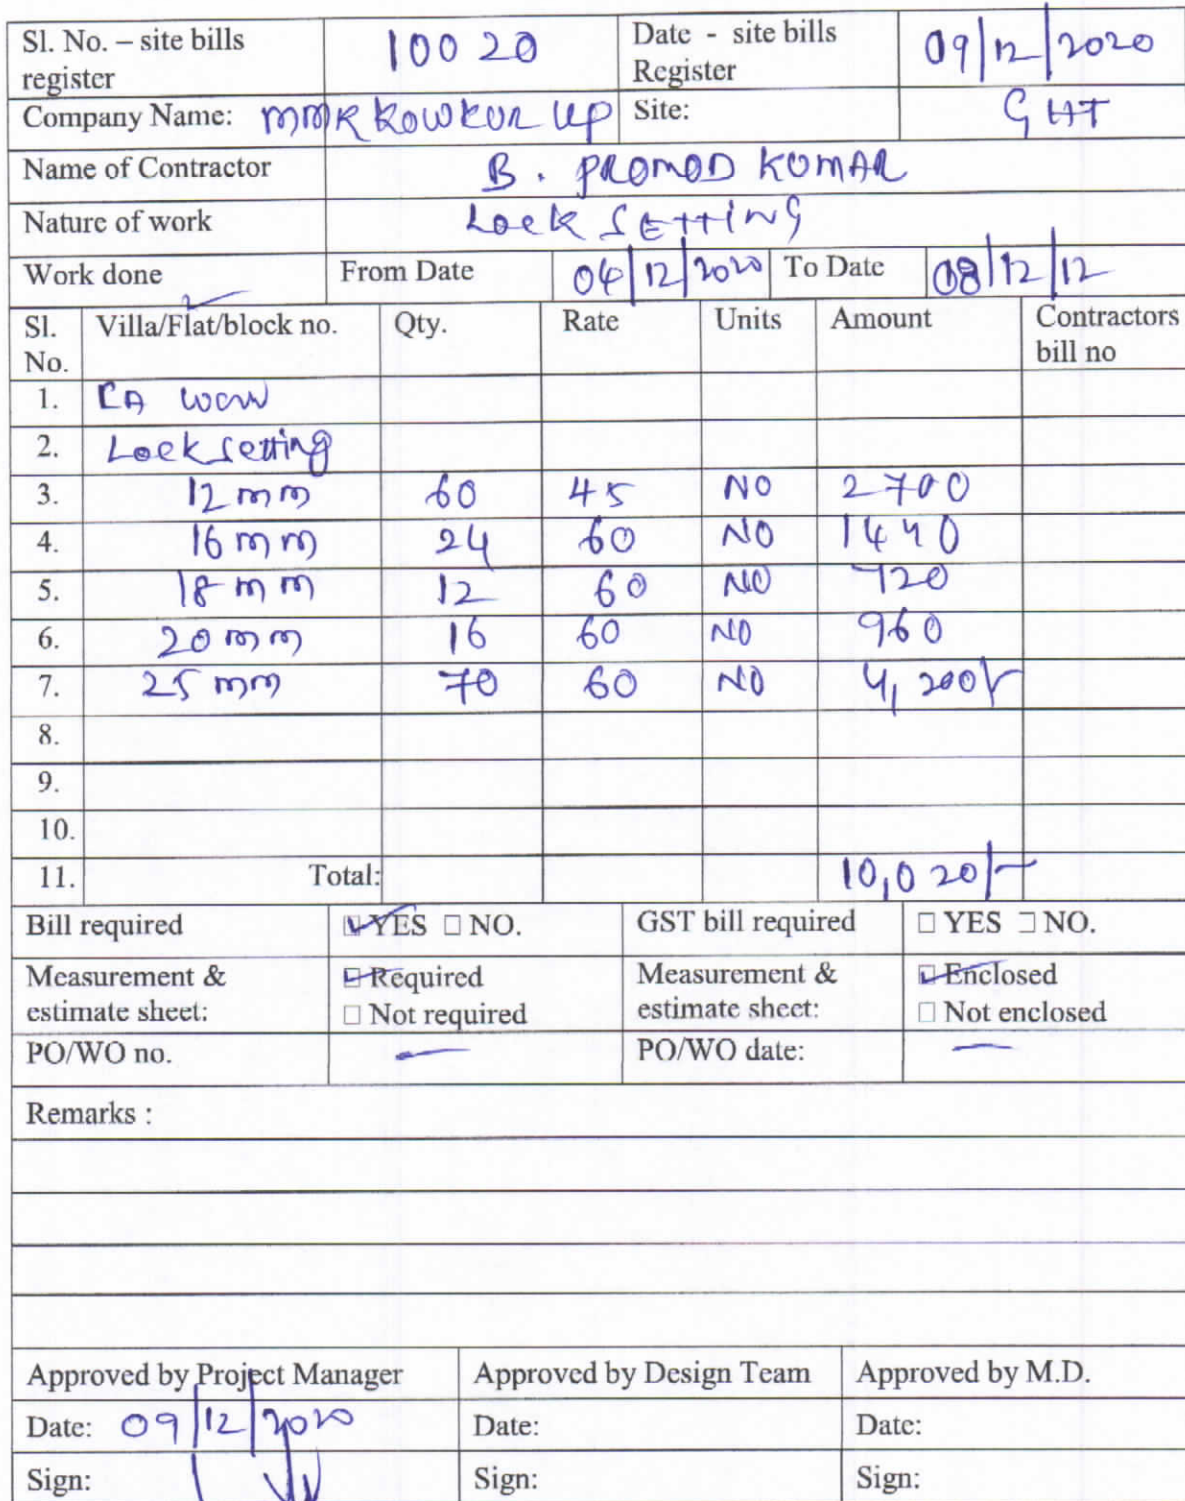 Sl. No. – site bills register 10020 Date - site bills Register 09/12/2020
Company Name: MMR KOWKUR LLP Site: GHT
Name of Contractor B. PROMOD KUMAR
Nature of work Lock SETTING
Work done From Date 04/12/2020 To Date 08/12/12
Sl. No. Villa/Flat/block no. Qty. Rate Units Amount Contractors bill no
1.
2. Lock setting
3. 12mm 60 45 NO 2700
4. 16mm 24 60 NO 1440
5. 18mm 12 60 NO 720
6. 20mm 16 60 NO 960
7. 25mm 70 60 NO 4,200/-
8.
9.
10.
11. Total: 10,020/-
Bill required YES NO. GST bill required YES NO.
Measurement & estimate sheet: Required Not required Measurement & estimate sheet: Enclosed Not enclosed
PO/WO no. — PO/WO date: —
Remarks :
Approved by Project Manager Approved by Design Team Approved by M.D.
Date: 09/12/2020 Date: Date:
Sign: Sign: Sign: